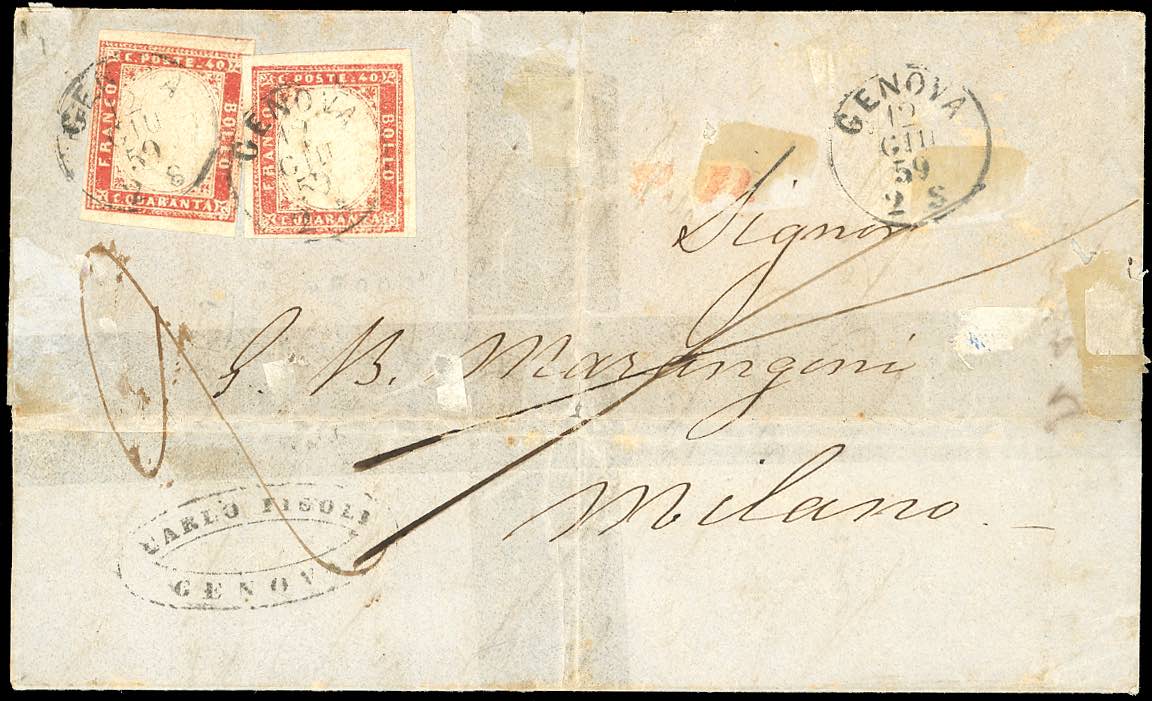 C. POSTE. 40
FRANCO
BOLLO
C. QUARANTA
C. POSTE. 40
FRANCO
BOLLO
C. QUARANTA
GENOVA
GIU
59
GENOVA
GENOVA
12
GIU
59
2 S
Signor
G. B. Marangoni
Milano
CARLO FIGOLI
GENOVA